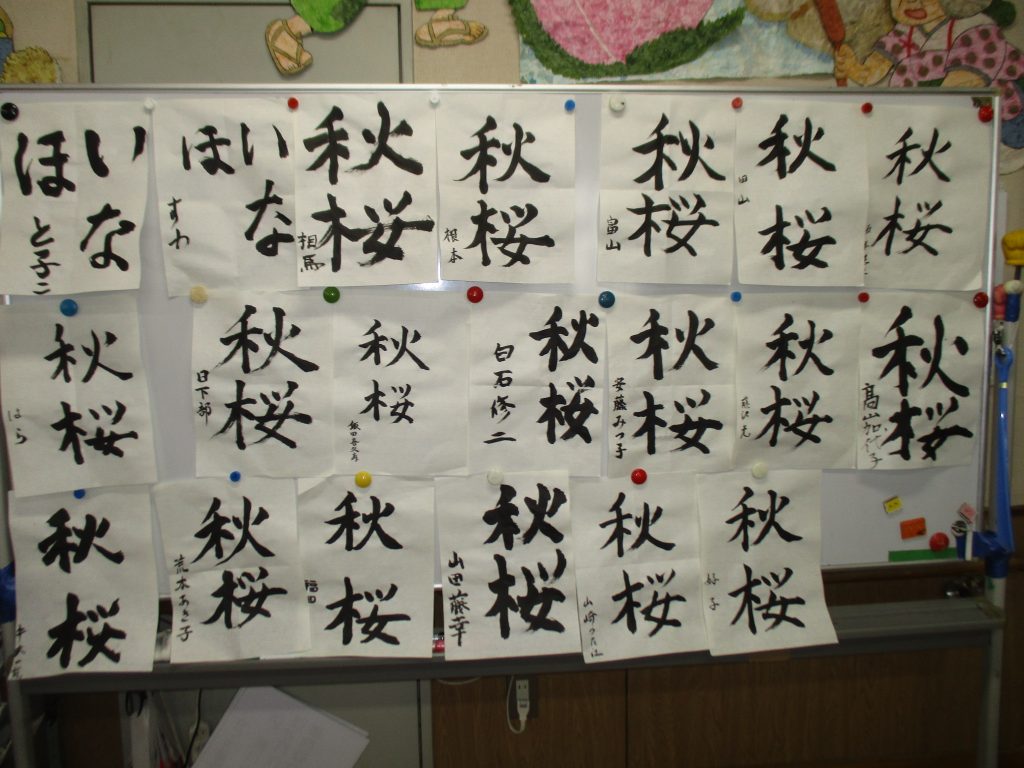 いなほ
と子
いなほ
すわ
秋桜
相馬
秋桜
根本
秋桜
畠山
秋桜
田山
秋桜
秋桜
はら
秋桜
日下部
秋桜
秋桜
白石修二
秋桜
安藤みつ子
秋桜
藤沢
秋桜
高山
秋桜
秋桜
荒木あき子
秋桜
福田
秋桜
山田藤幸
秋桜
山崎
秋桜
好子